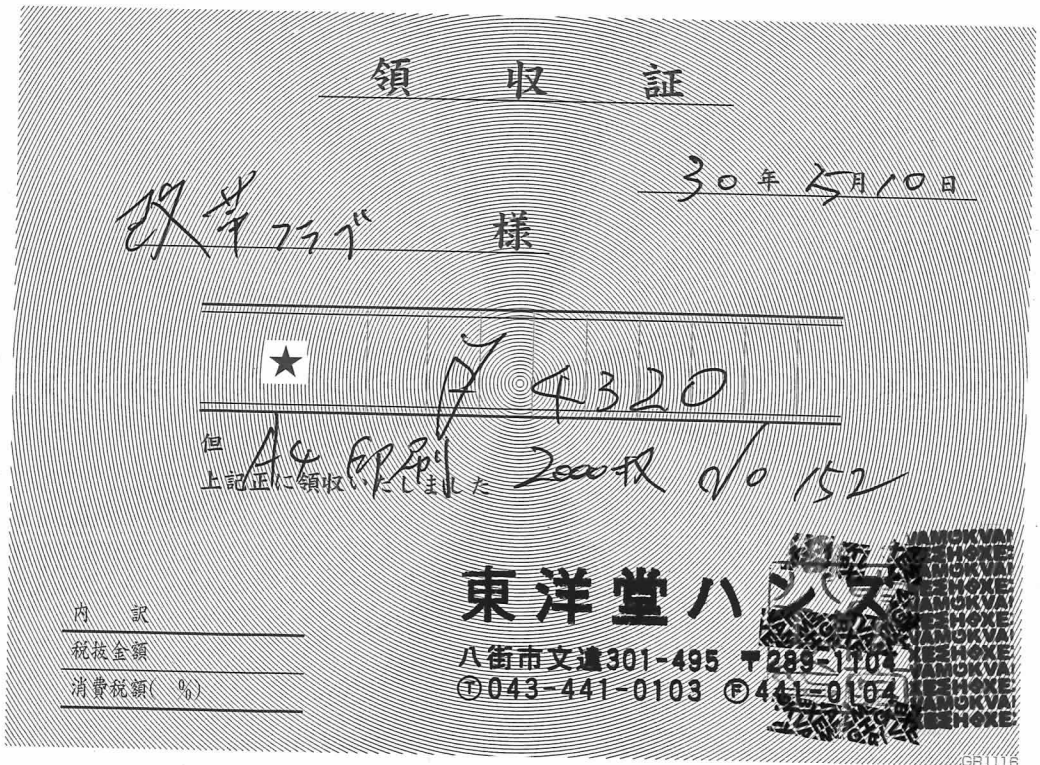 領収証
30年5月10日
改革クラブ 様
★ ¥4320
但 A4印刷 2000枚 No 152
上記正に領収いたしました
東洋堂ハンズ
八街市文違301-495 〒289-1104
Ⓣ043-441-0103 Ⓕ441-0104
内訳
税抜金額
消費税額( %)
GR1116